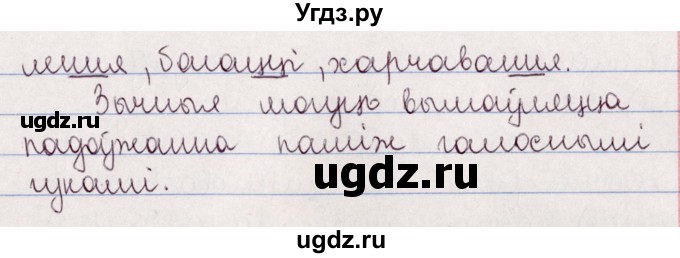 Угдз.ру
лення, балацці, харчавання.
Зычныя могуць вымаўляцца
падоўжана паміж галоснымі
гукамі.
ugdz.ru
ugdz.ru
ugdz.ru
ugdz.ru
ugdz.ru